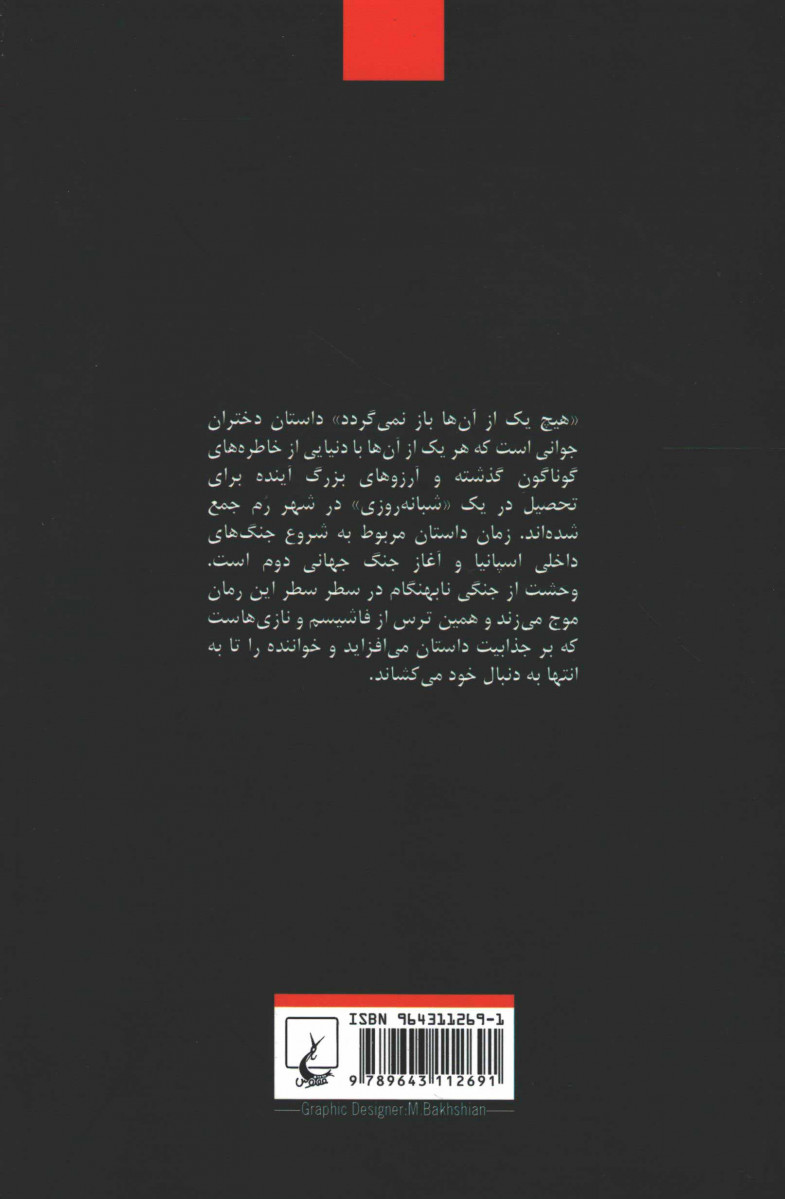 «هیچ یک از آن‌ها باز نمی‌گردد» داستان دختران
جوانی است که هر یک از آن‌ها با دنیایی از خاطره‌های
گوناگونِ گذشته و آرزوهای بزرگ آینده برای
تحصیل در یک «شبانه‌روزی» در شهر رُم جمع
شده‌اند. زمان داستان مربوط به شروع جنگ‌های
داخلی اسپانیا و آغاز جنگ جهانی دوم است.
وحشت از جنگی نابهنگام در سطر سطر این رمان
موج می‌زند و همین ترس از فاشیسم و نازی‌هاست
که بر جذابیت داستان می‌افزاید و خواننده را تا به
انتها به دنبال خود می‌کشاند.
ISBN 964311269-1
ققنوس
9 789643 112691
Graphic Designer:M.Bakhshian